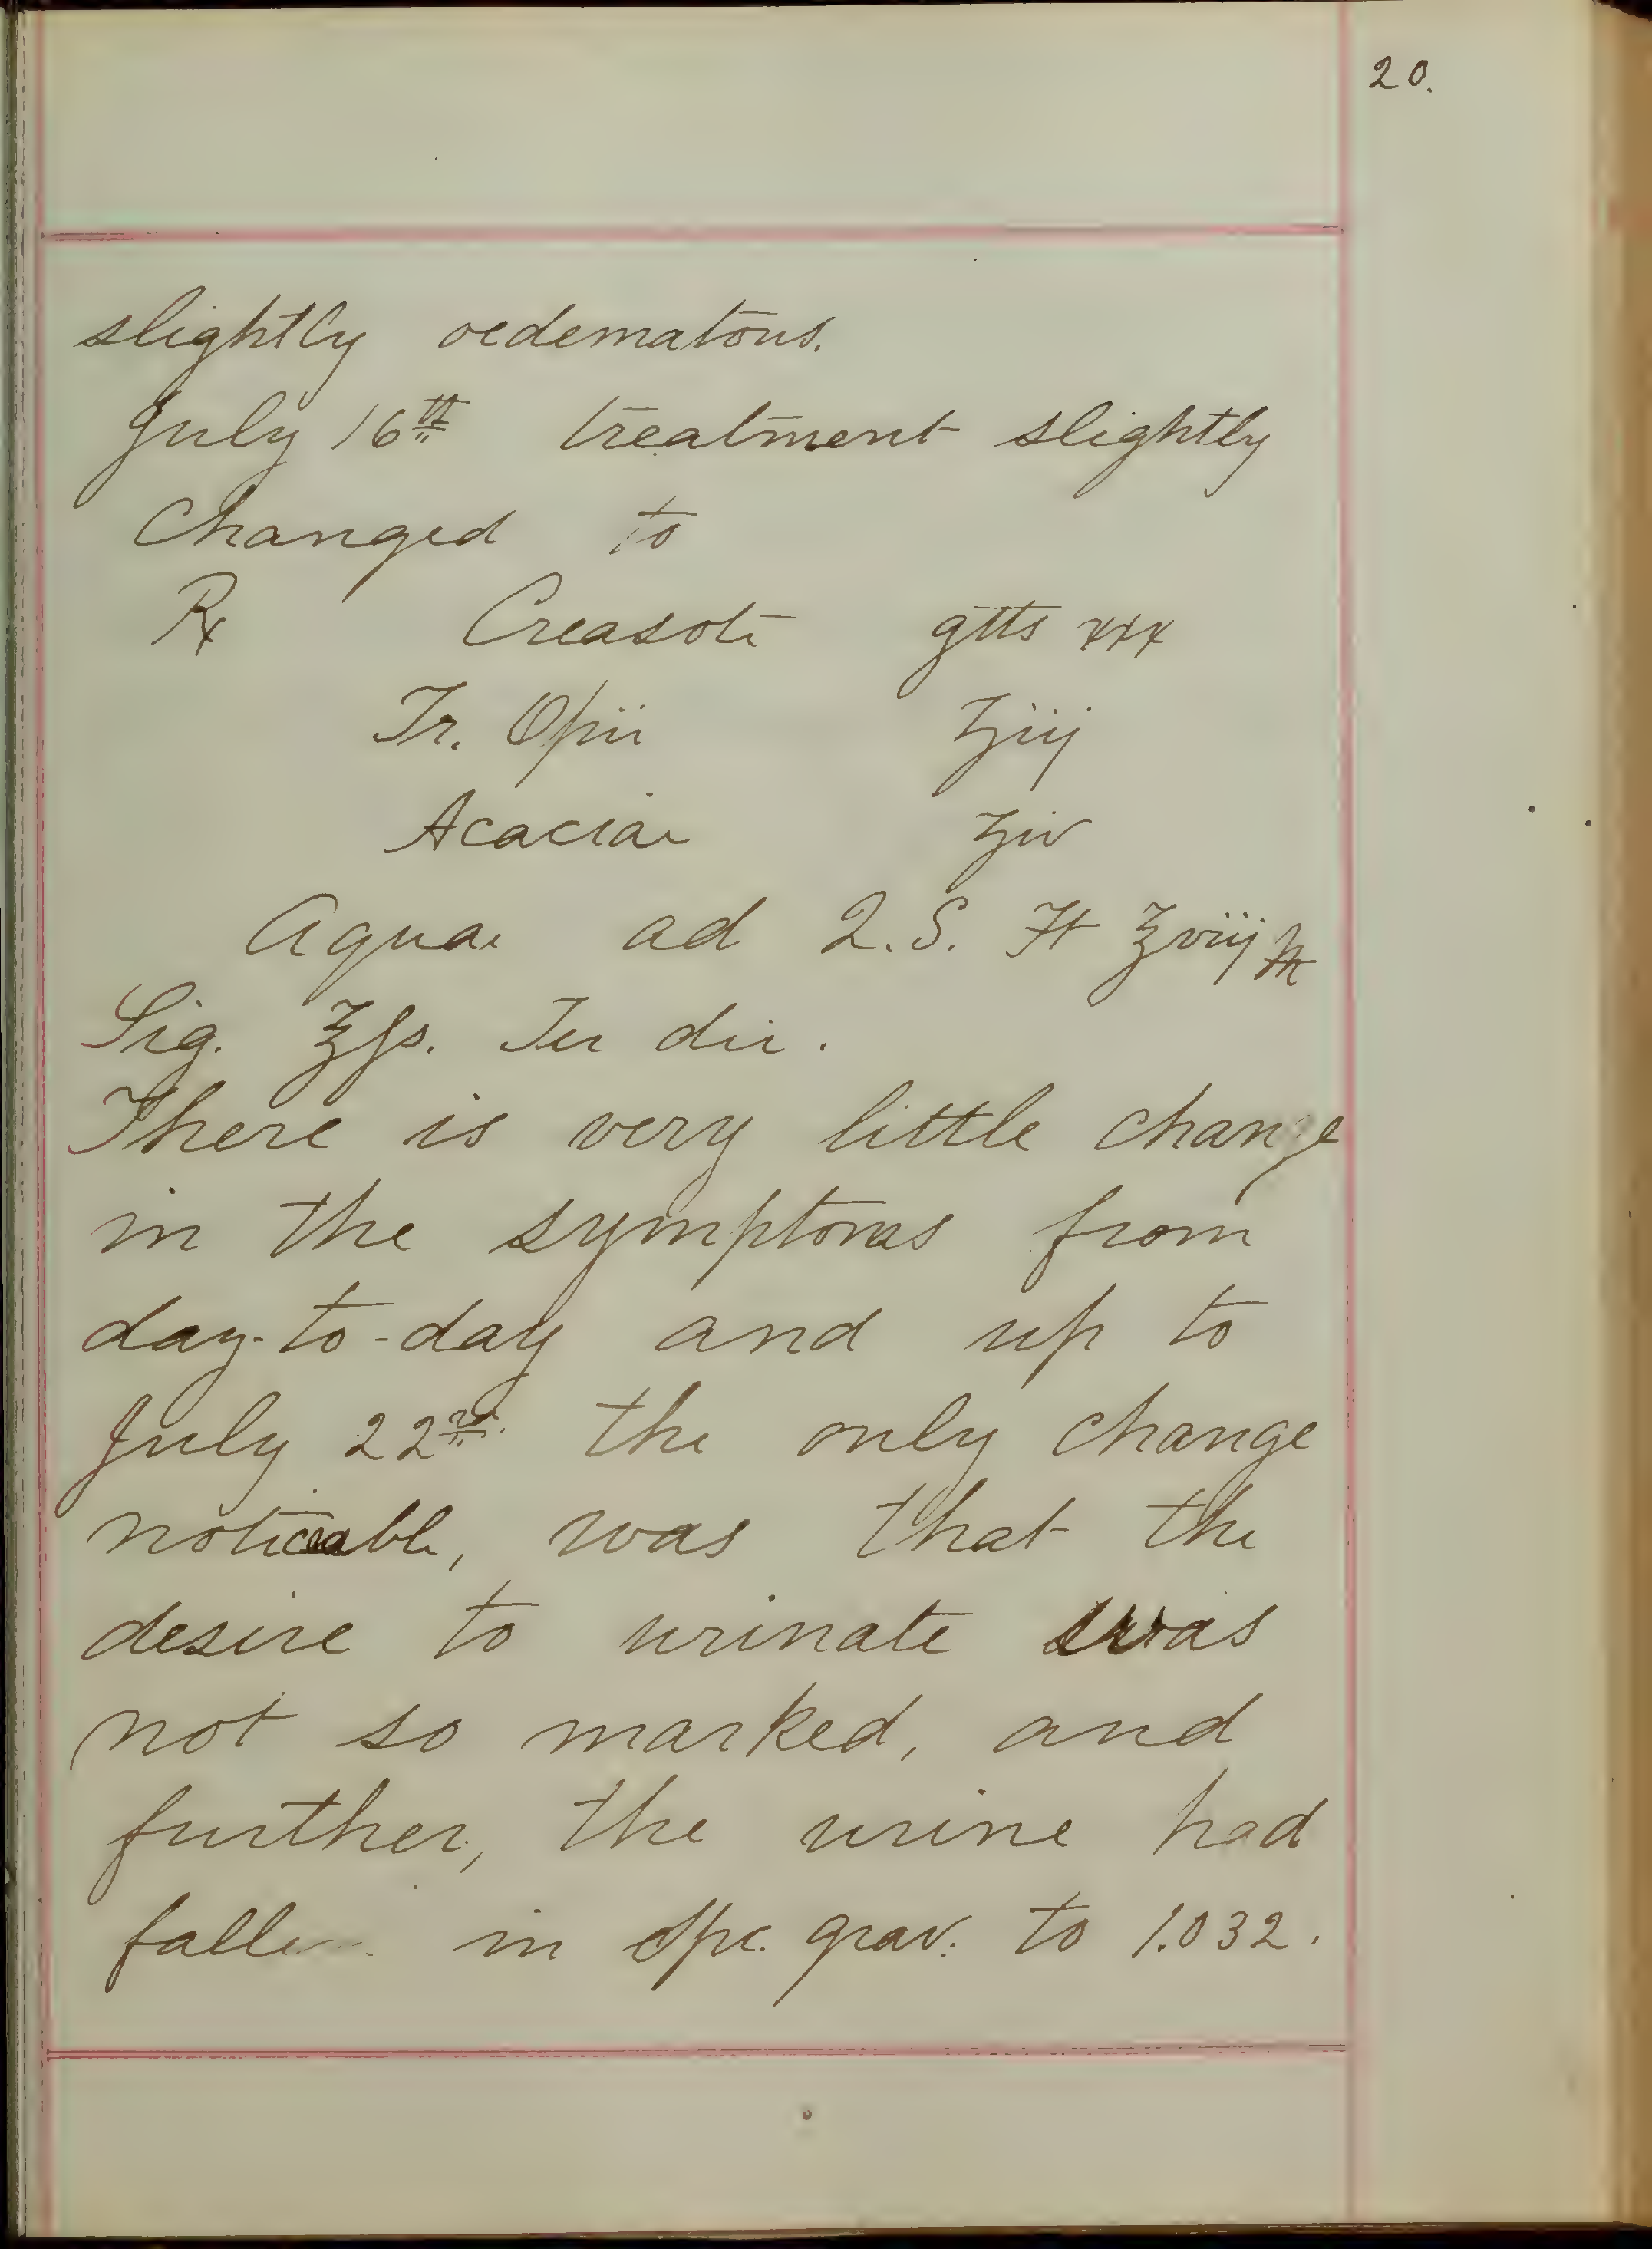 20.
slightly oedematous.
July 16th treatment slightly
Changed to
℞ Creasote gtts xxx
Tr. Opii ʒiij
Acaciae ʒiv
Aquae ad Q.S. Ft ℥viij M
Sig. ℥ss. Ter die.
There is very little change
in the symptoms from
day-to-day and up to
July 22nd. the only change
noticeable, was that the
desire to urinate was
not so marked, and
further, the urine had
fallen in Spc. grav. to 1.032.